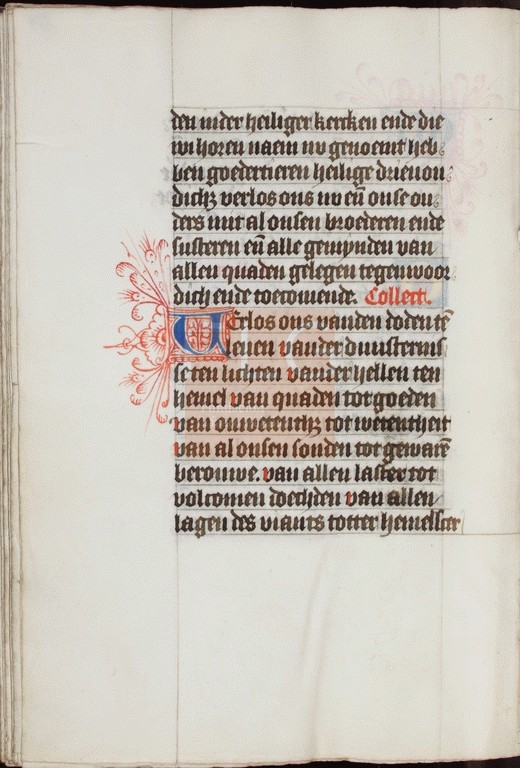 den in der heiliger kercken ende die
wi horen naem nv genoemt heb
ben goedertieren heilige drieuou
dich₃ verlos ons nv en̄ onse ou
ders mit al onsen broederen ende
susteren en̄ alle gemynden van
allen quaden gelegen tegenwoor
dich ende toecomende. Collect.
VErlos ons vanden doden tē
leuen vander duusternis
se ten lichten vander hellen ten
hemel van quaden tot goeden
van onwetenth₃ tot wetentheit
van al onsen sonden tot gewarē
berouwe. van allen laster tot
volcomen doechden van allen
lagen des viants totter hemelscer